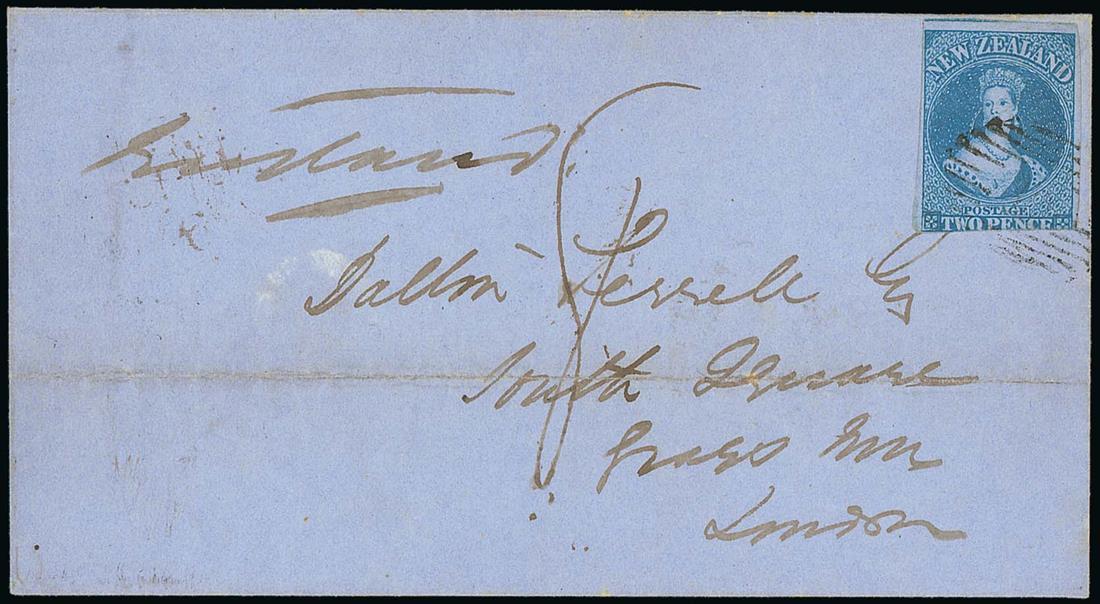 NEW ZEALAND
POSTAGE
TWO PENCE
England
Dalton Terrell Esq
South Square
Grays Inn
London